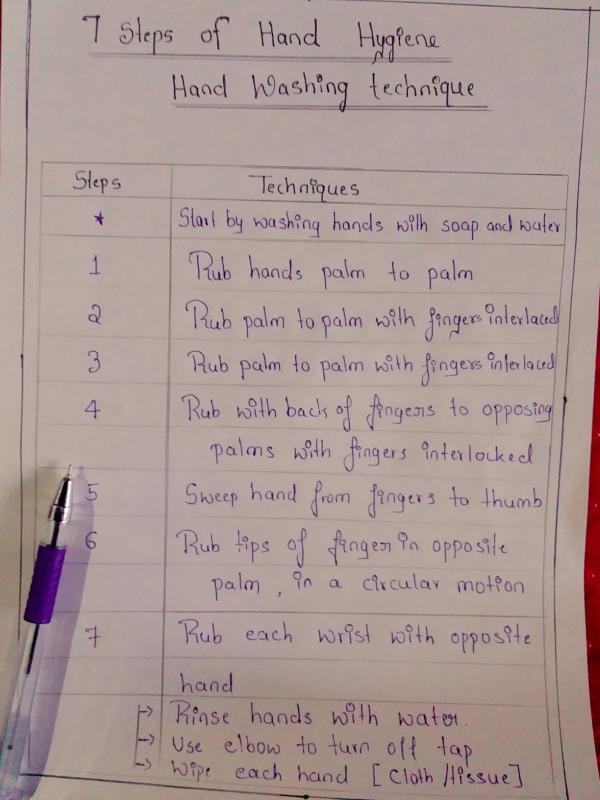 7 Steps of Hand Hygiene
Hand Washing technique
Steps Techniques
* Start by washing hands with soap and water
1 Rub hands palm to palm
2 Rub palm to palm with fingers interlaced
3 Rub palm to palm with fingers interlaced
4 Rub with back of fingers to opposing
palms with fingers interlocked
5 Sweep hand from fingers to thumb
6 Rub tips of finger in opposite
palm, in a circular motion
7 Rub each wrist with opposite
hand
→ Rinse hands with water.
→ Use elbow to turn off tap
→ Wipe each hand [Cloth/tissue]